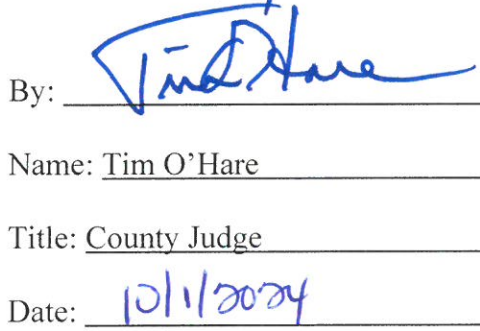 By: Tim O'Hare
Name: Tim O'Hare
Title: County Judge
Date: 10/1/2024